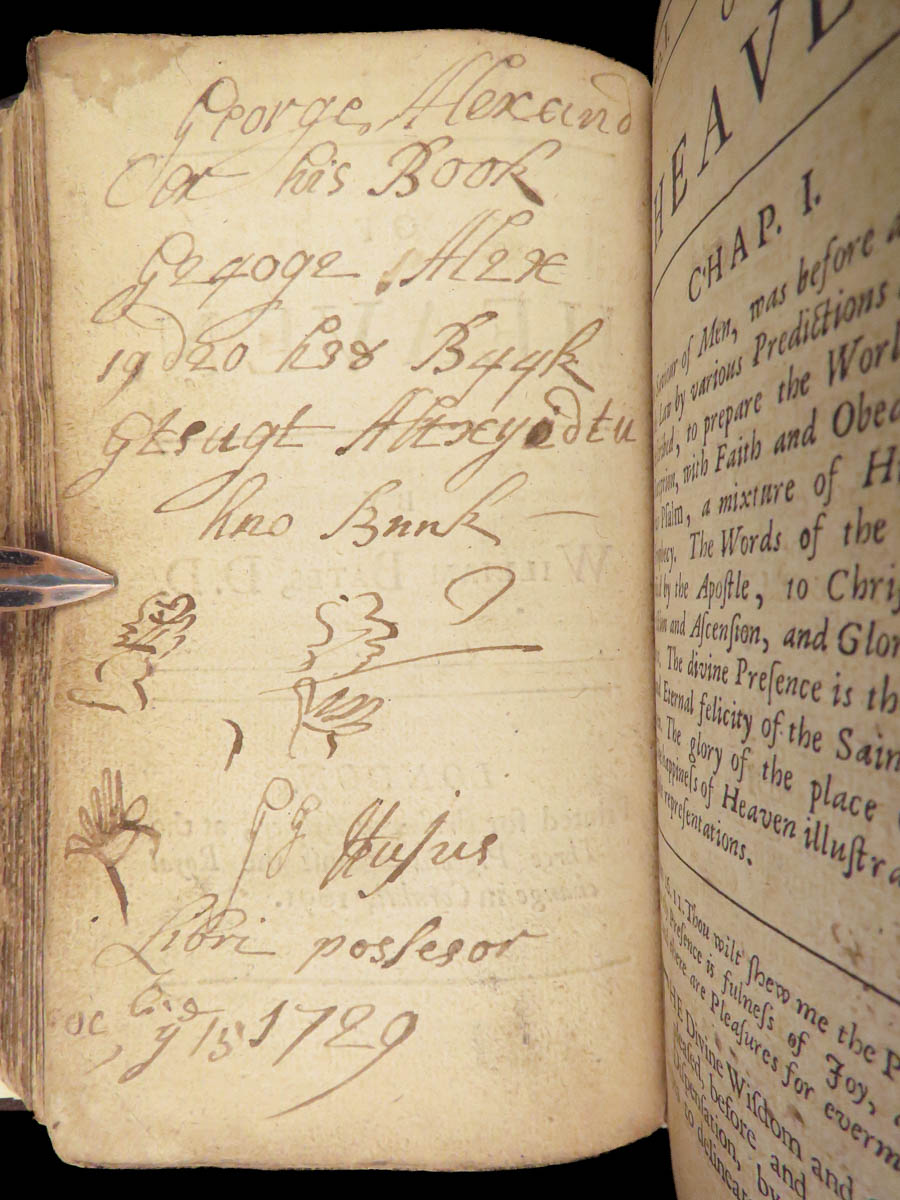 George Alexand
Er his Book
Ge4oge Alex
19d20 hs8 B44k
Gtsugt Altxyidtu
hno Bnnk
G g Hujus
Libri possesor
oc big y 15 1729
HEAVE
CHAP. I.
Saviour of Men, was before
Law by various Predictions
to prepare the Worl
with Faith and Obed
Psalm, a mixture of H
The Words of the
by the Apoſtle, to Chriſ
and Aſcenſion, and Glor
The divine Preſence is th
Eternal felicity of the Sain
The glory of the place
happineſs of Heaven illuſtra
repreſentations.
16. 11. Thou wilt ſhew me the P
preſence is fulneſs of Joy,
there are Pleaſures for everm
THE Divine Wiſdom and
pleaſed, before and
Diſpenſation, by
to delinea